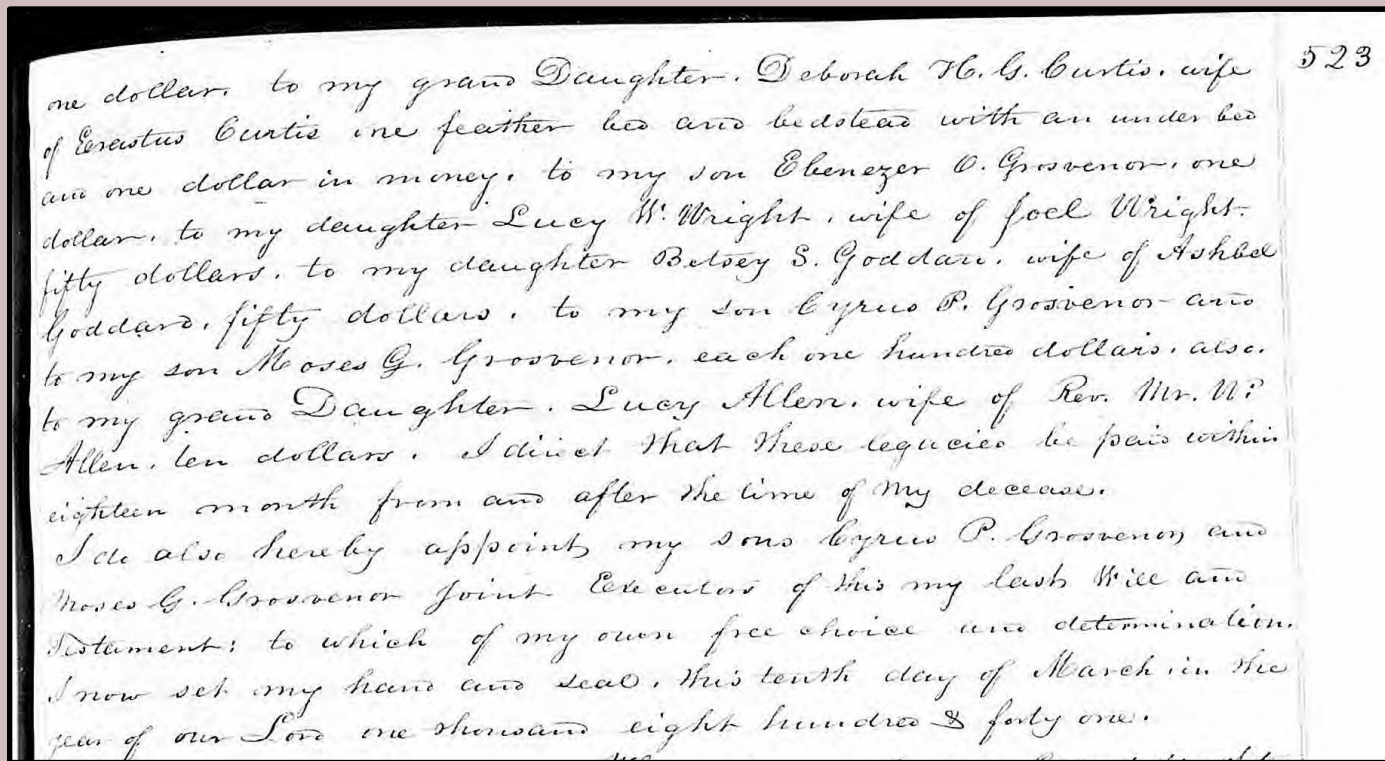 523
one dollar. to my grand Daughter. Deborah H. G. Curtis. wife
of Erastus Curtis one feather bed and bedstead with an under bed
and one dollar in money. to my son Ebenezer O. Grosvenor. one
dollar. to my daughter Lucy W. Wright. wife of Joel Wright.
fifty dollars. to my daughter Betsey S. Goddard. wife of Ashbel
Goddard. fifty dollars. to my son Cyrus P. Grosvenor and
to my son Moses G. Grosvenor. each one hundred dollars. also.
to my grand Daughter. Lucy Allen. wife of Rev. Mr.
Allen. ten dollars. I direct that these legacies be paid within
eighteen month from and after the time of my decease.
I do also hereby appoint my sons Cyrus P. Grosvenor and
Moses G. Grosvenor Joint Executors of this my last Will and
Testament: to which of my own free choice and determination.
I now set my hand and seal. this tenth day of March. in the
year of our Lord one thousand eight hundred & forty one.